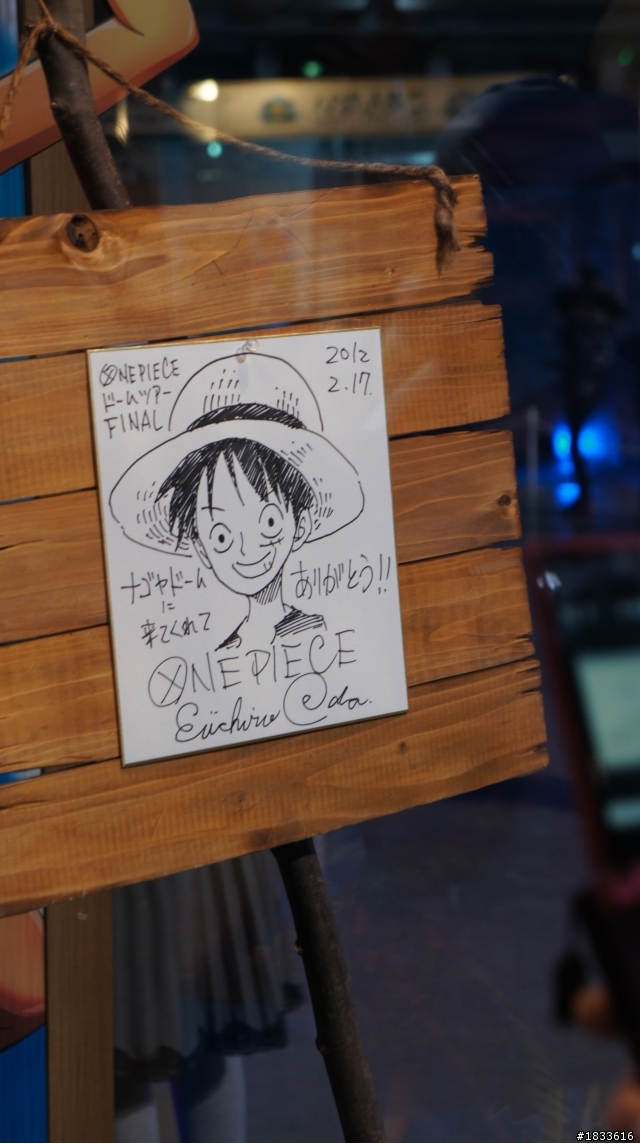 ONEPIECE
ドームツアー
FINAL
2012
2.17.
ナゴヤドーム
に
来てくれて
ありがとう!!
ONE PIECE
Eiichiro Oda.
#1833616